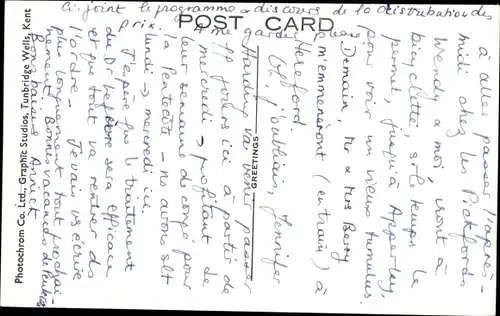 Ci-joint le programme & discours de la distribution des
prix. A me garder please
POST CARD
à aller passer l'après-
midi chez les Pickfords
Wendy & moi, iront à
bicyclette si le temps le
permet, jusqu'à Apperley,
pour voir un vieux tumulus.
Demain, Mr & Mrs Berry
m'emmèneront (en train) à
Hereford
Oh, j'oubliais, Jennifer
Harding va venir passer
jours ici à partir de
mercredi → profitant de
leur semaine de congé pour
la Pentecôte - ns avons slt
lundi → mercredi ici.
J'espère que le traitement
du Dr sera efficace
et que tout va rentrer ds
l'ordre - Je vais vs écrire
plus longuement tout prochai-
nement, Bonnes vacances de Pentecôte
Bons baisers Annick
GREETINGS
Photochrom Co. Ltd., Graphic Studios, Tunbridge Wells, Kent